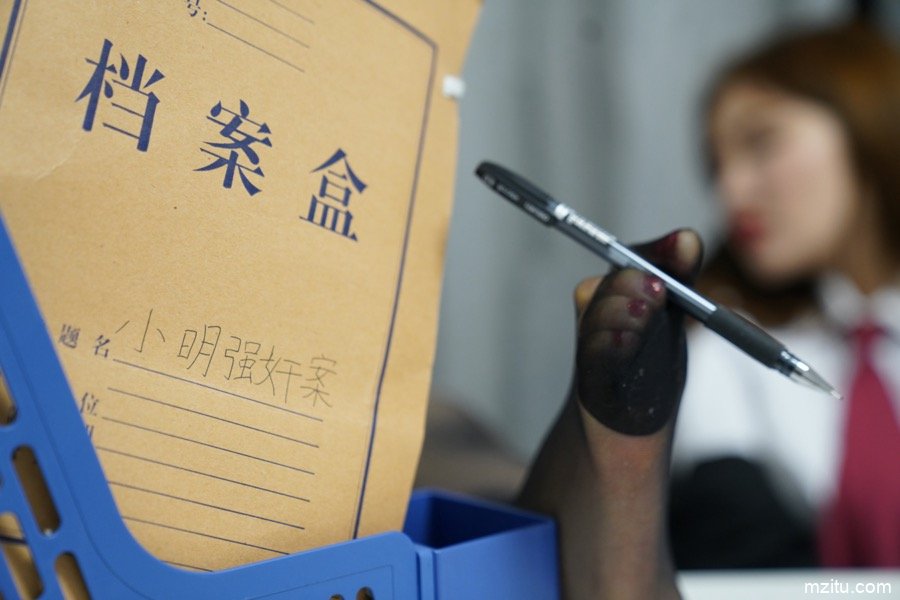 号:
档案盒
题名 小明强奸案
位
mzitu.com